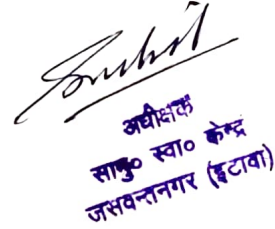 अधीक्षक
सामु० स्वा० केन्द्र
जसवन्तनगर (इटावा)